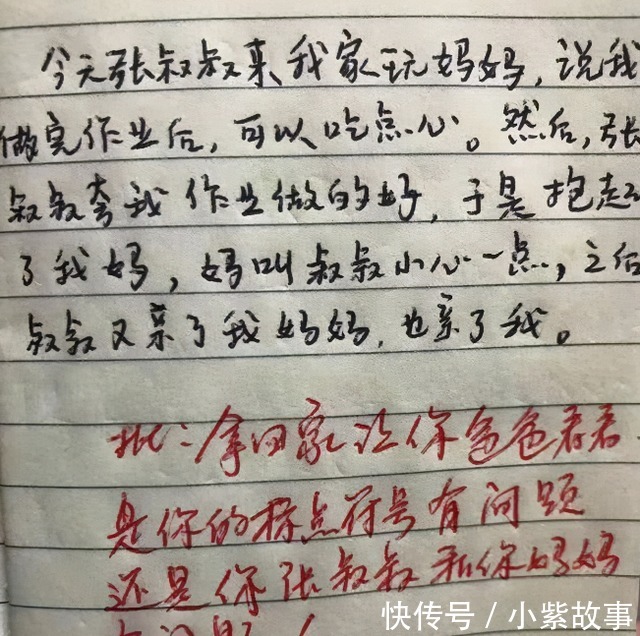 今天张叔叔来我家玩妈妈，说我
做完作业后，可以吃点心。然后，张
叔叔夸我作业做的好，于是抱起
了我妈，妈叫叔叔小心一点，之后
叔叔又亲了我妈妈，也亲了我。
批：拿回家让你爸爸看看
是你的标点符号有问题
还是你张叔叔和你妈妈
快传号 / 小紫故事